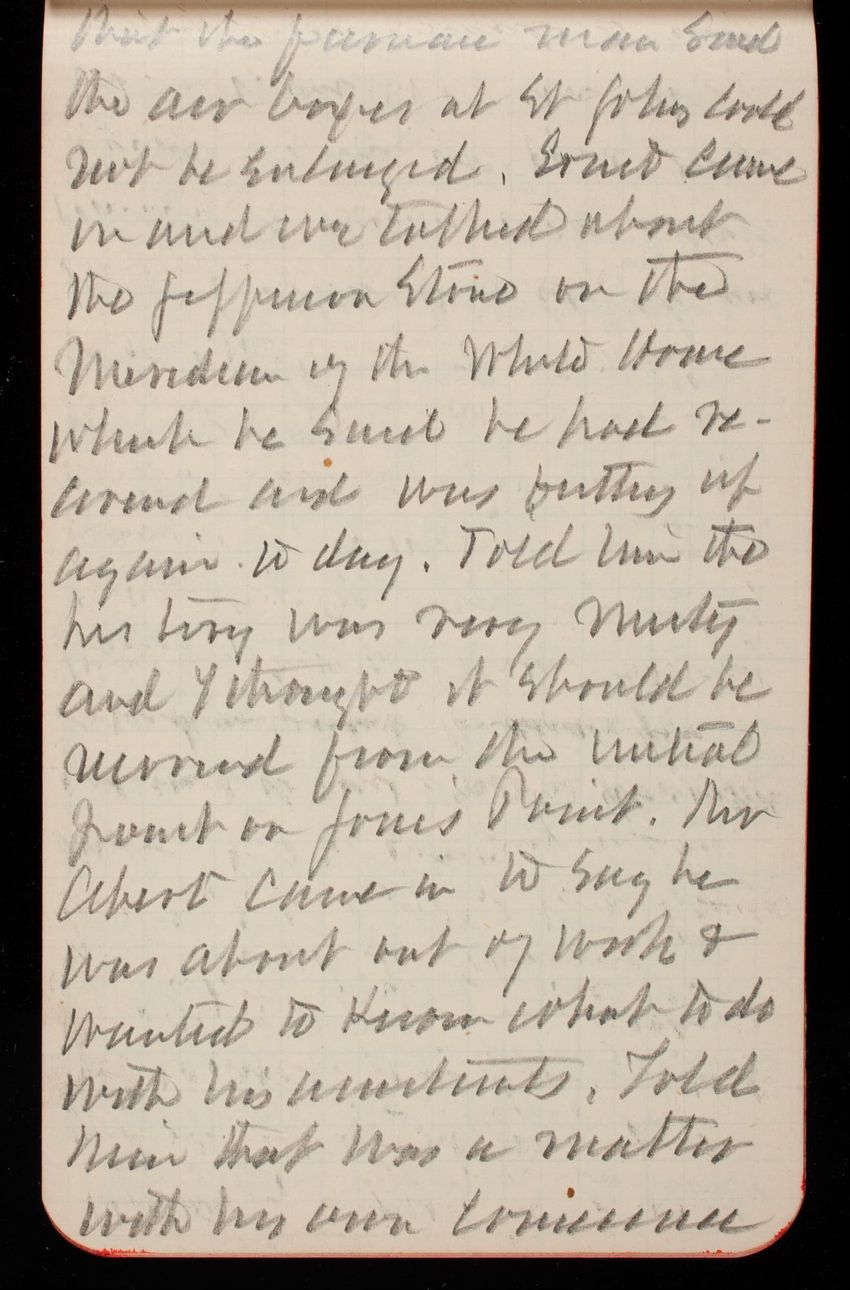 that the furnace man said
the air boxes at St Johns could
not be enlarged. Ernst came
in and we talked about
the Jefferson Stone on the
Meridian of the White House
which he said he had re-
and was putting up
again to day. Told him the
history was very misty
and I thought it should be
from the initial
point on Jones Point. Mr
Abert came in to say he
was about out of work &
wanted to know what to do
with his assistants. Told
him that was a matter
with his own conscience